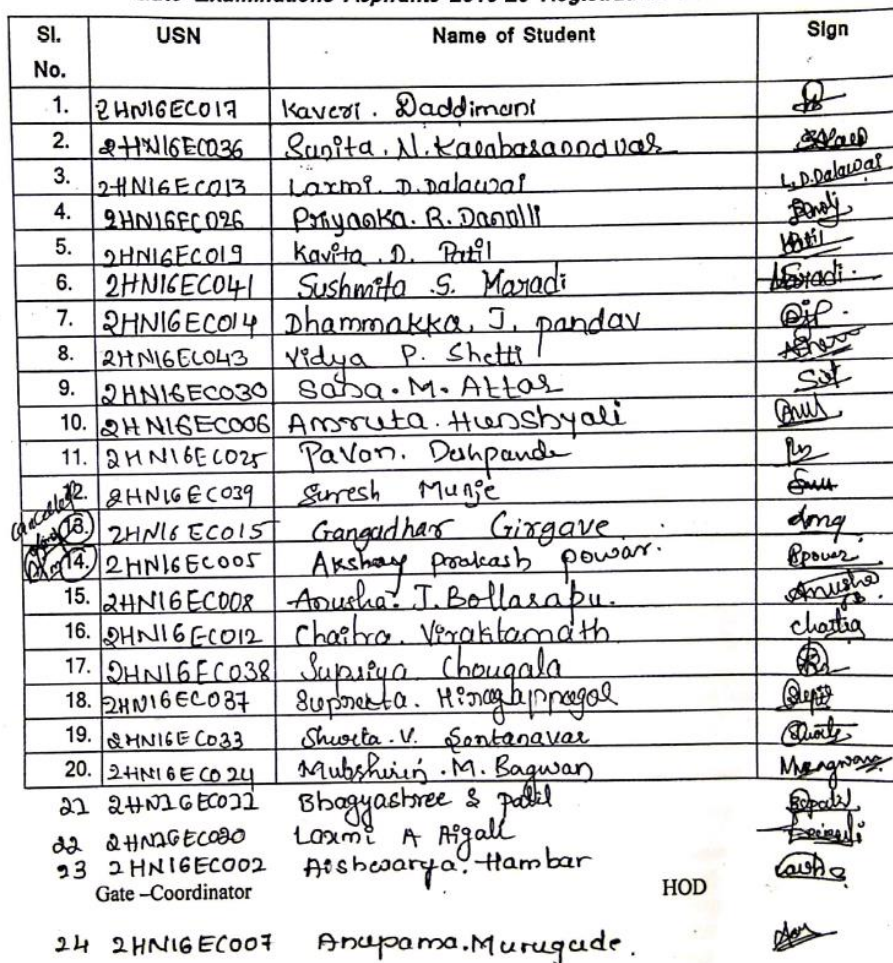 Gate Examinations Aspirants 2019-20
Sl. No. USN Name of Student Sign
1. 2HN16EC017 Kaveri. Daddimani
2. 2HN16EC036 Sunita. N. Kalabasannavar
3. 2HN16EC013 Laxmi. D. Dalawai L.D.Dalawai
4. 2HN16EC026 Priyanka. R. Danolli
5. 2HN16EC019 Kavita. D. Patil Patil
6. 2HN16EC041 Sushmita S. Maradi Maradi.
7. 2HN16EC014 Dhammakka. J. pandav DJP.
8. 2HN16EC043 Vidya P. Shetti
9. 2HN16EC030 Saba. M. Attar
10. 2HN16EC006 Amruta. Hunshyali
11. 2HN16EC025 Pavan. Deshpande
12. 2HN16EC039 Suresh Munje
Cancelled 13. 2HN16EC015 Gangadhar Girgave
14. 2HN16EC005 Akshay prakash powar.
15. 2HN16EC008 Anusha. J. Bollasapu. Anusha
16. 2HN16EC012 Chaitra. Viraktamath chaitra
17. 2HN16EC038 Supriya Chougala
18. 2HN16EC037 Supreeta.
19. 2HN16EC033 Shweta. V. Sontanavar
20. 2HN16EC024 Mubshirin. M. Bagwan
21 2HN16EC011 Bhagyashree S patil
22 2HN16EC020 Laxmi A Aigali
23 2HN16EC002 Aishwarya. Hambar
Gate –Coordinator HOD
24 2HN16EC007 Anupama. Murugude.